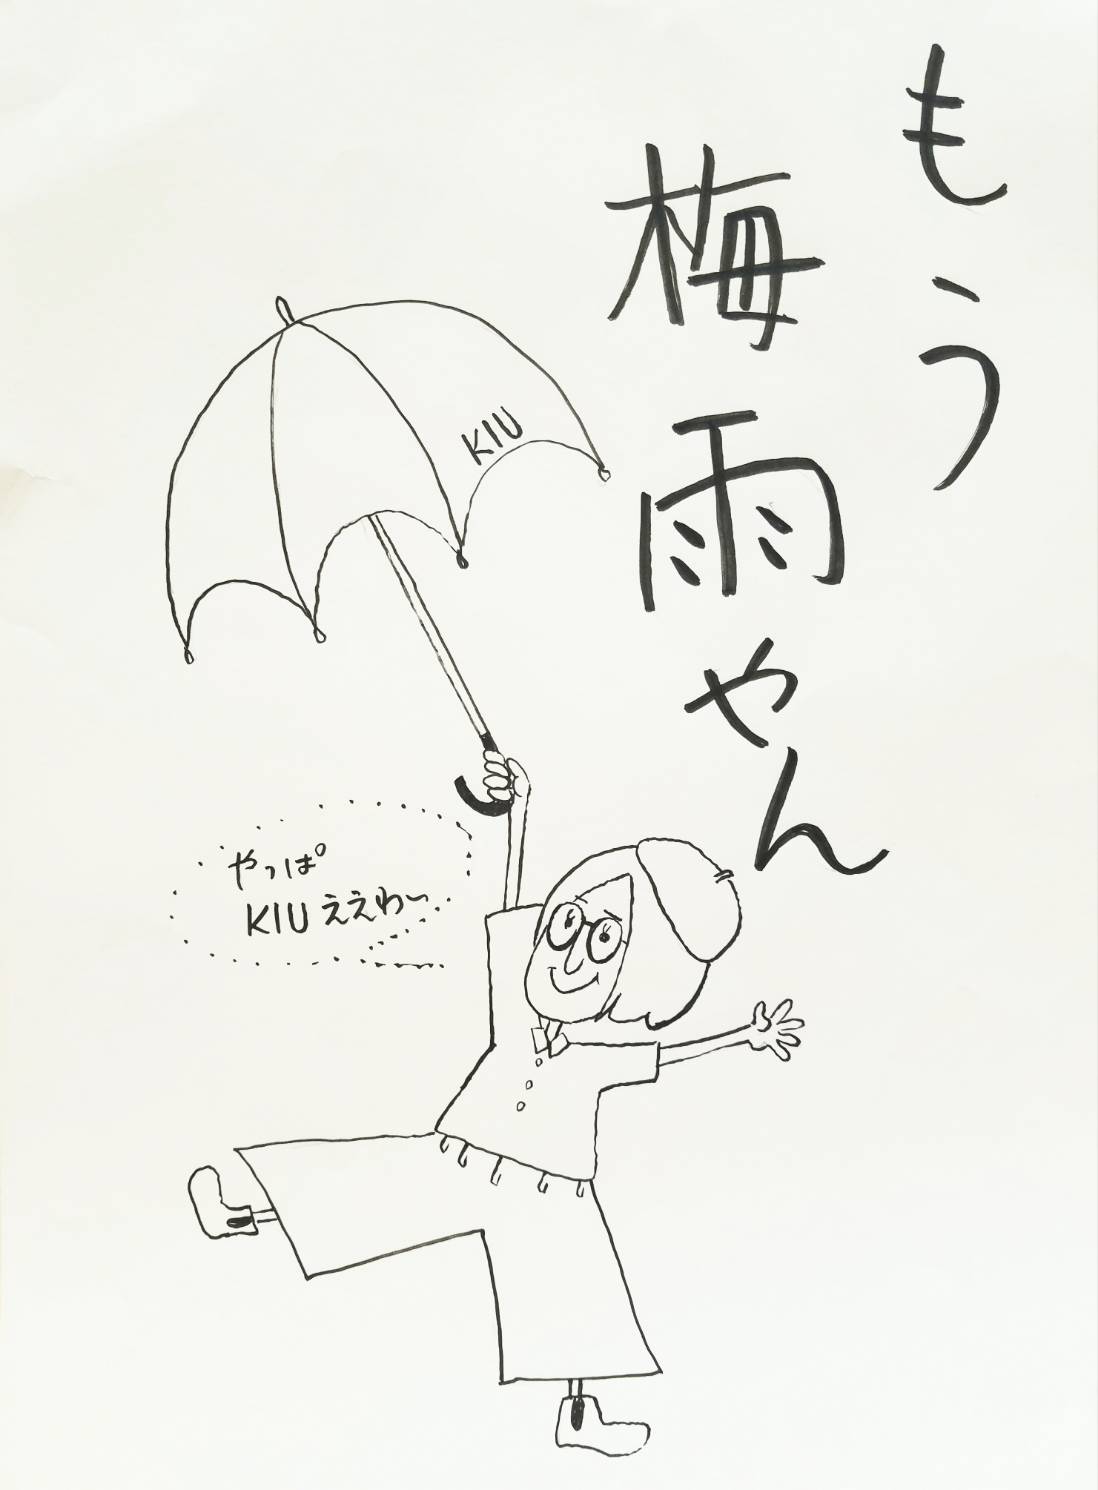 もう
梅雨やん
KIU
やっぱ
KIUええわ〜